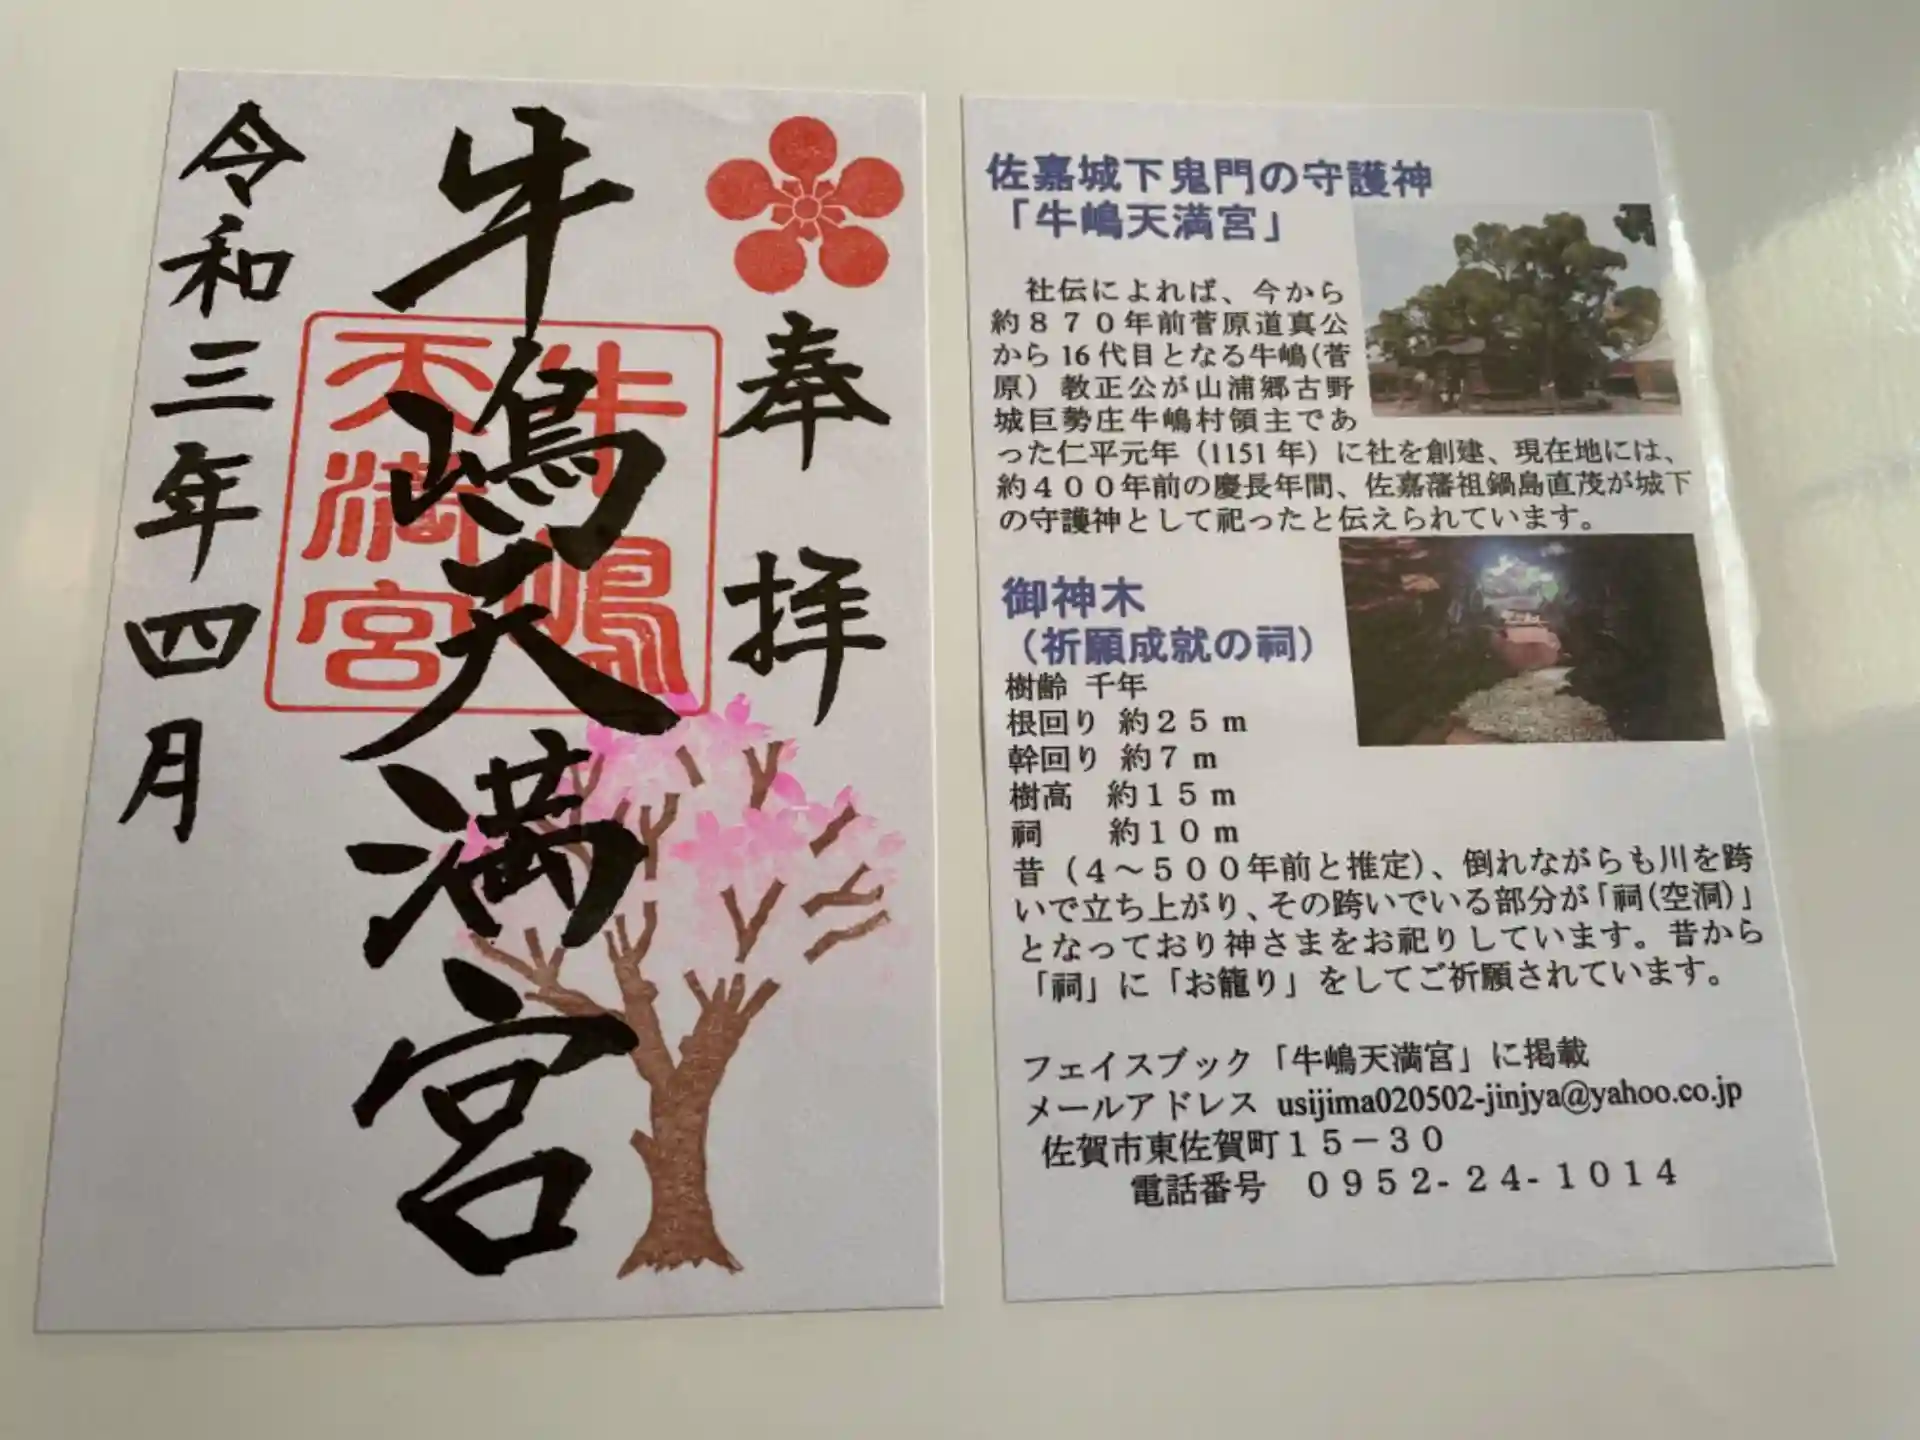 奉拝
牛嶋天満宮
牛嶋
天満宮
令和三年四月
佐嘉城下鬼門の守護神
「牛嶋天満宮」
社伝によれば、今から
約８７０年前菅原道真公
から16代目となる牛嶋(菅
原）教正公が山浦郷古野
城巨勢庄牛嶋村領主であ
った仁平元年（1151年）に社を創建、現在地には、
約４００年前の慶長年間、佐嘉藩祖鍋島直茂が城下
の守護神として祀ったと伝えられています。
御神木
（祈願成就の祠）
樹齢 千年
根回り 約２５ｍ
幹回り 約７ｍ
樹高　約１５ｍ
祠　　約１０ｍ
昔（４～５００年前と推定）、倒れながらも川を跨
いで立ち上がり、その跨いでいる部分が「祠(空洞)」
となっており神さまをお祀りしています。昔から
「祠」に「お籠り」をしてご祈願されています。
フェイスブック「牛嶋天満宮」に掲載
メールアドレス usijima020502-jinjya@yahoo.co.jp
佐賀市東佐賀町１５－３０
電話番号　０９５２-２４-１０１４